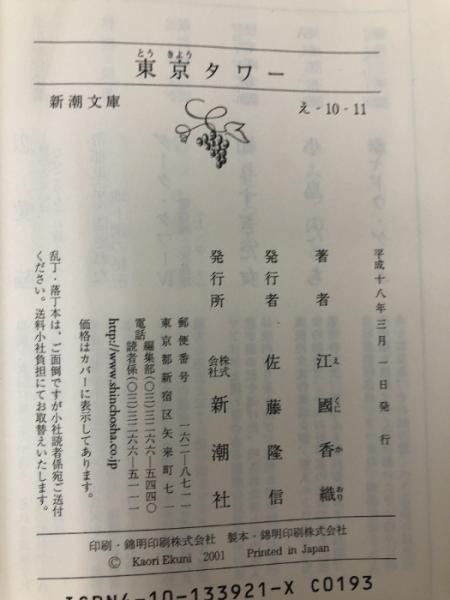 とうきょう
東京タワー
新潮文庫
え-10-11
平成十八年三月一日発行
著者 江國香織
えくにかおり
発行者 佐藤隆信
発行所 株式会社 新潮社
郵便番号 一六二―八七一一
東京都新宿区矢来町七一
電話 編集部(〇三)三二六六―五四四〇
読者係(〇三)三二六六―五一一一
http://www.shinchosha.co.jp
価格はカバーに表示してあります。
乱丁・落丁本は、ご面倒ですが小社読者係宛ご送付
ください。送料小社負担にてお取替えいたします。
印刷・錦明印刷株式会社 製本・錦明印刷株式会社
© Kaori Ekuni 2001 Printed in Japan
ISBN4-10-133921-X C0193